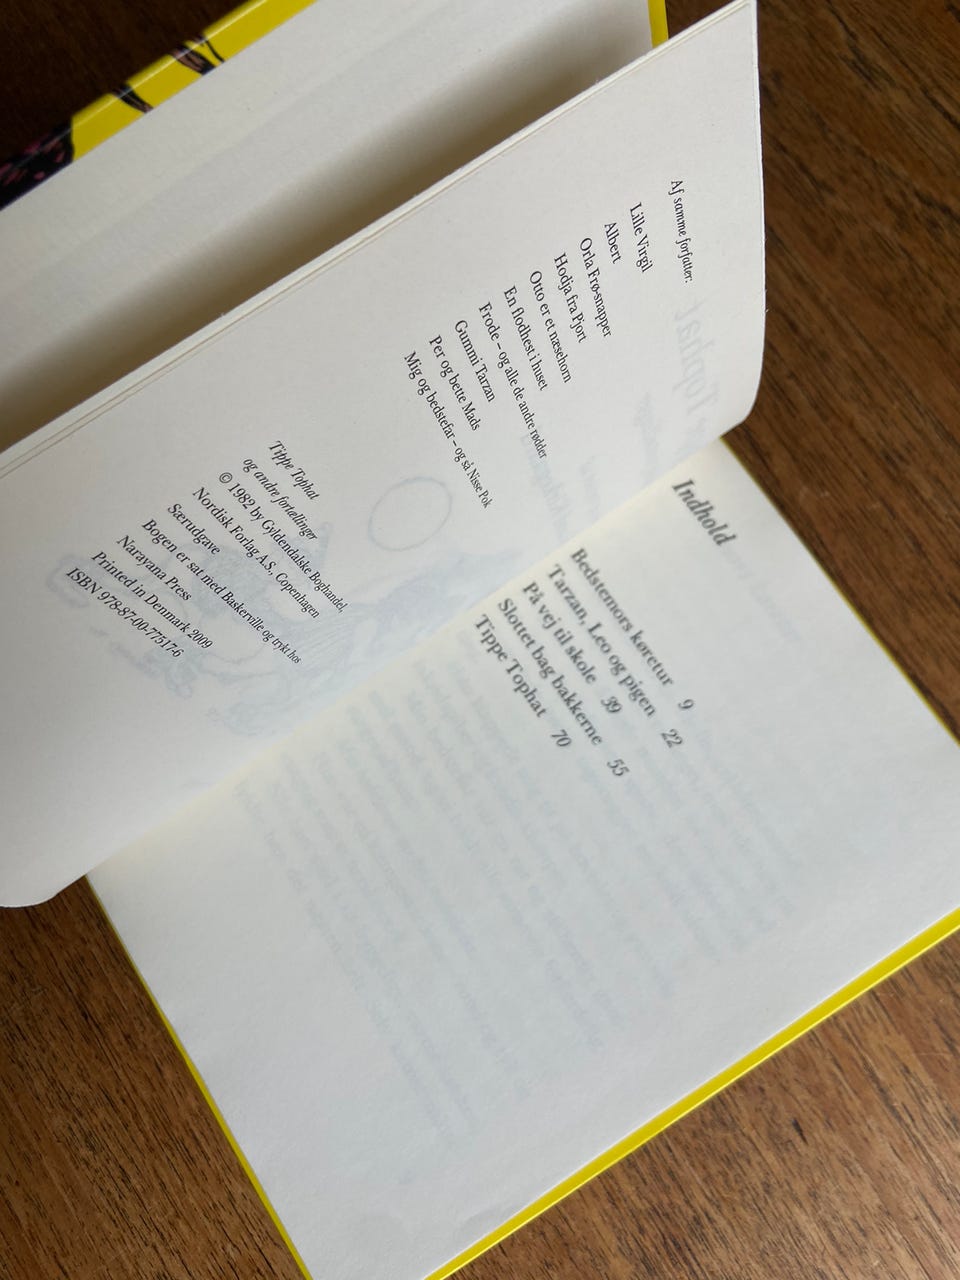 Af samme forfatter:
Lille Virgil
Albert
Orla Frø-snapper
Hodja fra Pjort
Otto er et næsehorn
En flodhest i huset
Frode – og alle de andre rødder
Gummi Tarzan
Per og bette Mads
Mig og bedstefar – og så Nisse Pok
Tippe Tophat
og andre fortællinger
© 1982 by Gyldendalske Boghandel,
Nordisk Forlag A.S., Copenhagen
Særudgave
Bogen er sat med Baskerville og trykt hos
Narayana Press
Printed in Denmark 2009
ISBN 978-87-00-77517-6
Indhold
Bedstemors køretur 9
Tarzan, Leo og pigen 22
På vej til skole 39
Slottet bag bakkerne 55
Tippe Tophat 70